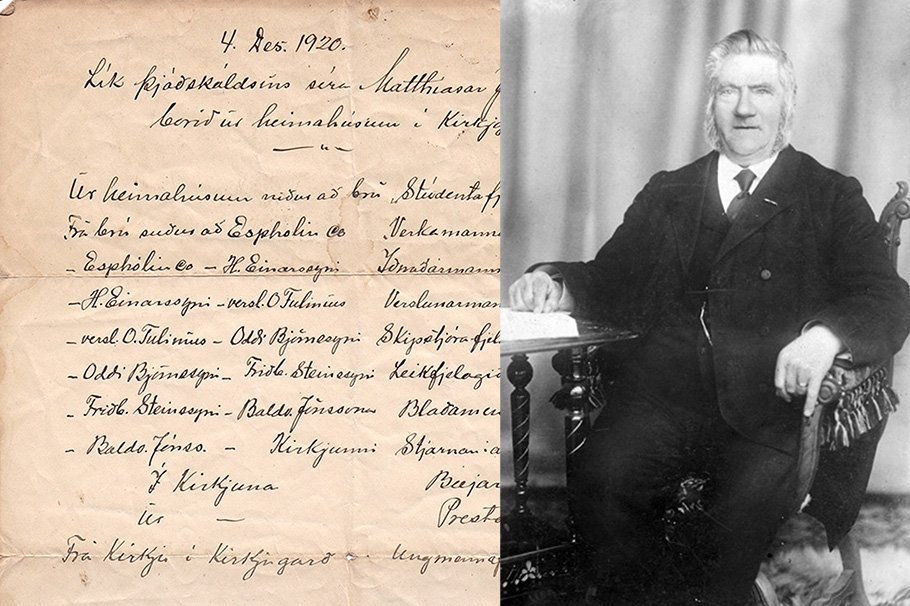 4. Des. 1920.
Lík þjóðskáldsins síra Matthíasar
borið úr heimahúsum í Kirkj
Úr heimahúsum niður að brú „Stúdentafj
Frá brú suður að Espholin Co Verkamann
- Espholin Co - H. Einarssyni Iðnaðarmann
- H. Einarssyni - versl. O Tulinius Verslunarman
- versl. O. Tulinius - Oddi Björnssyni Skipstjórafjel
- Oddi Björnssyni - Friðb. Steinssyni Leikfjelagi
- Friðb. Steinssyni - Baldv. Jónssona Blaðamen
- Baldv. Jónss. - Kirkjunni Stjarnan
Í Kirkjuna Bæjar
Úr — Prest
Frá Kirkju í Kirkjugarð Ungmennaf